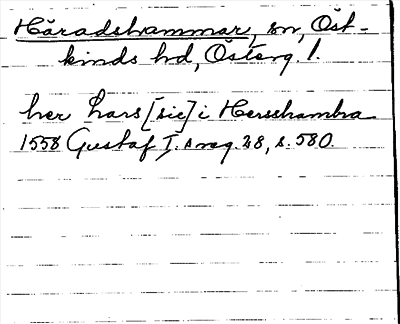 Häradshammar, sn, Öst-
kinds hd, Österg. l.
her Lars [sic] i Hersshambra
1558 Gustaf I:s reg. 28, s. 580.